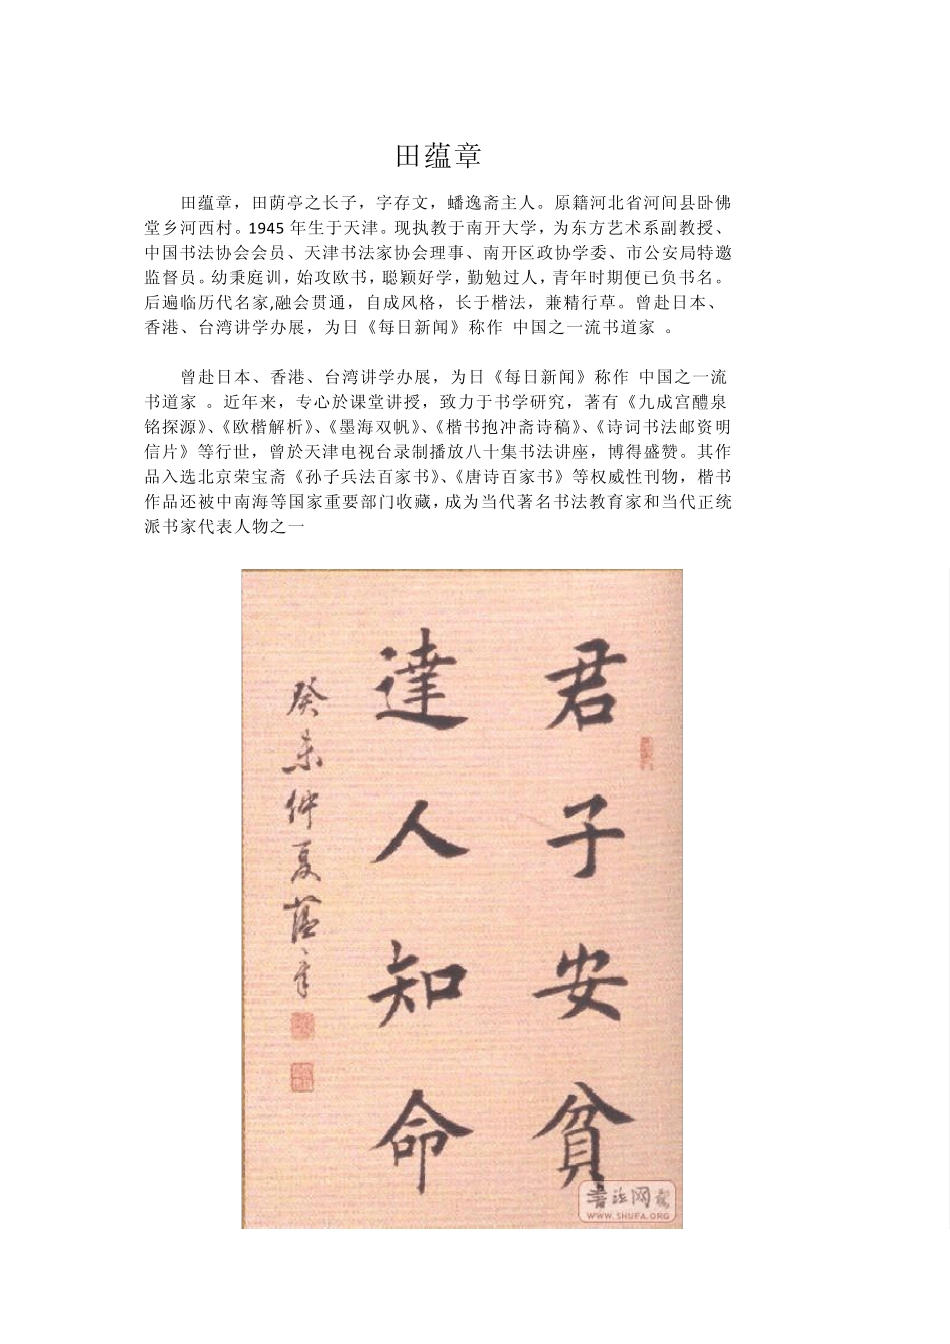 田蕴章
田蕴章，田荫亭之长子，字存文，蟠逸斋主人。原籍河北省河间县卧佛
堂乡河西村。1945 年生于天津。现执教于南开大学，为东方艺术系副教授、
中国书法协会会员、天津书法家协会理事、南开区政协学委、市公安局特邀
监督员。幼秉庭训，始攻欧书，聪颖好学，勤勉过人，青年时期便已负书名。
后遍临历代名家,融会贯通，自成风格，长于楷法，兼精行草。曾赴日本、
香港、台湾讲学办展，为日《每日新闻》称作 中国之一流书道家 。
曾赴日本、香港、台湾讲学办展，为日《每日新闻》称作 中国之一流
书道家 。近年来，专心於课堂讲授，致力于书学研究，著有《九成宫醴泉
铭探源》、《欧楷解析》、《墨海双帆》、《楷书抱冲斋诗稿》、《诗词书法邮资明
信片》等行世，曾於天津电视台录制播放八十集书法讲座，博得盛赞。其作
品入选北京荣宝斋《孙子兵法百家书》、《唐诗百家书》等权威性刊物，楷书
作品还被中南海等国家重要部门收藏，成为当代著名书法教育家和当代正统
派书家代表人物之一
君子安貧
達人知命
癸未仲夏蕴章
书法网
WWW.SHUFA.ORG